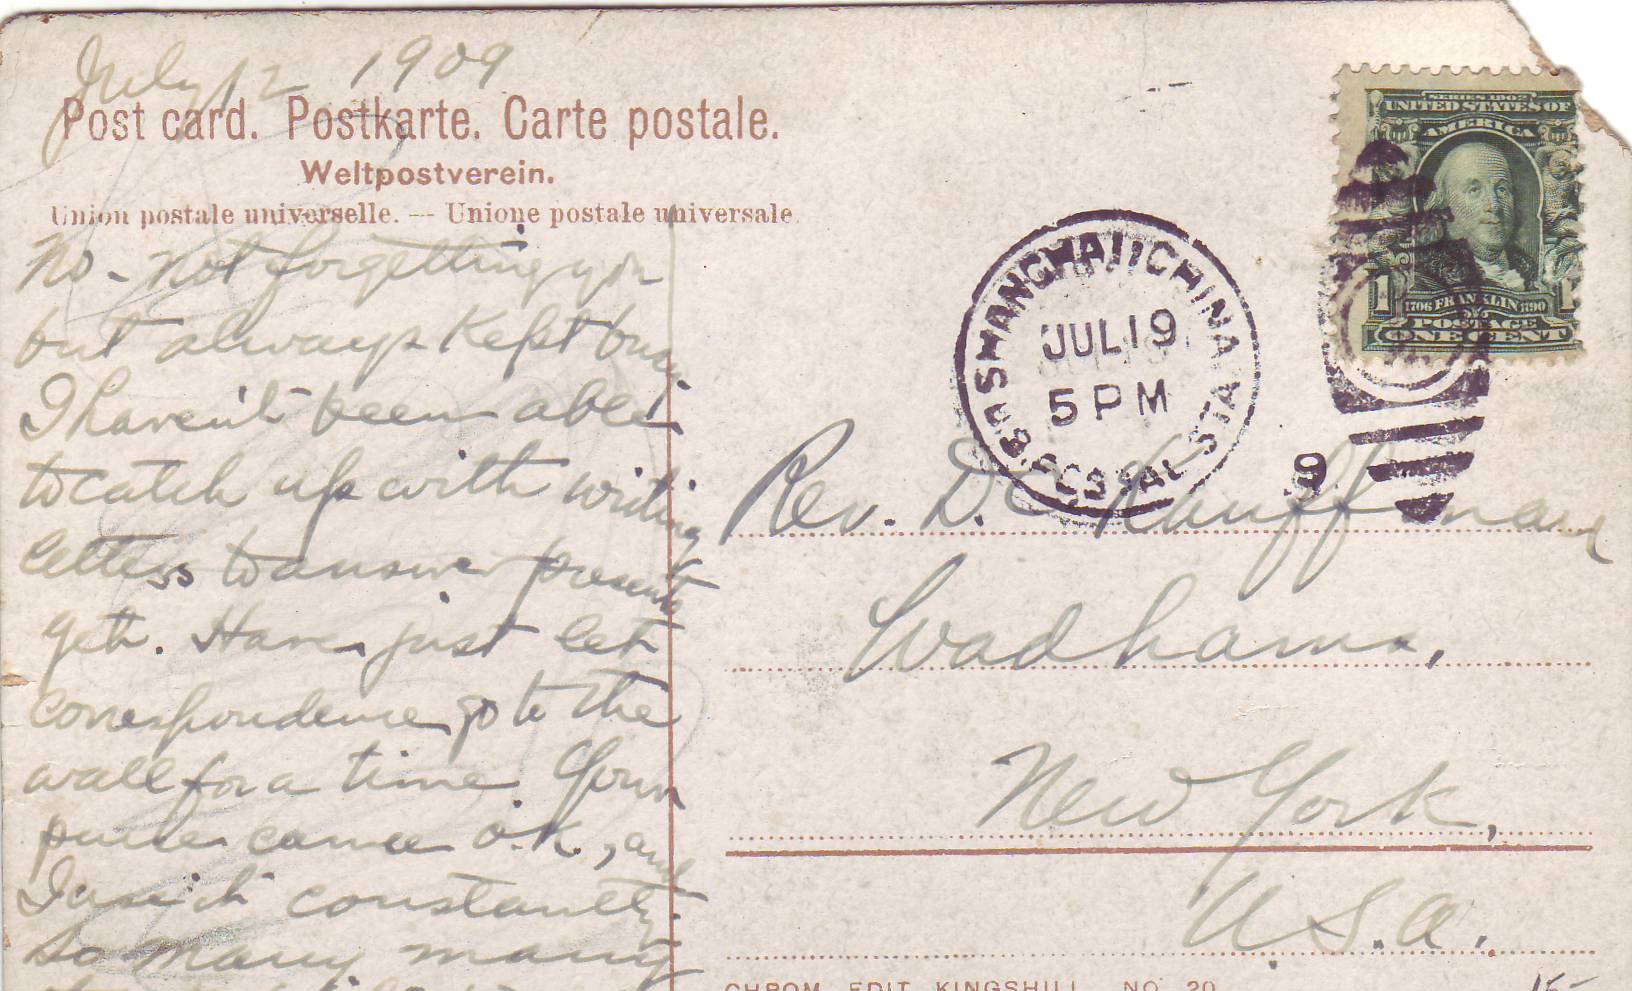 July 12 1909
Post card. Postkarte. Carte postale.
Weltpostverein.
Union postale universelle. — Unione postale universale
No - not forgetting you
but always kept busy
I haven't been able
to catch up with writing
letters to answer presents
yet. Have just let
correspondence go to the
wall for a time. Your
purse came O.K., and
I use it constantly.
So many many
SERIES 1902
UNITED STATES OF
AMERICA
1 1
1706 FRANKLIN 1790
POSTAGE
ONE CENT
U.S. POSTAL STA. SHANGHAI CHINA
JUL 19
5 PM
9
Rev. D. Kauffman
Wadhams,
New York,
U.S.A.
CHROM. EDIT. KINGSHILL NO. 20
15-